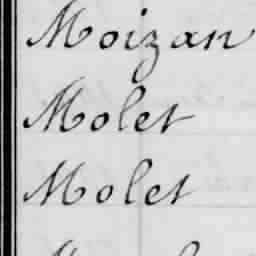 Moizan
Molet
Molet